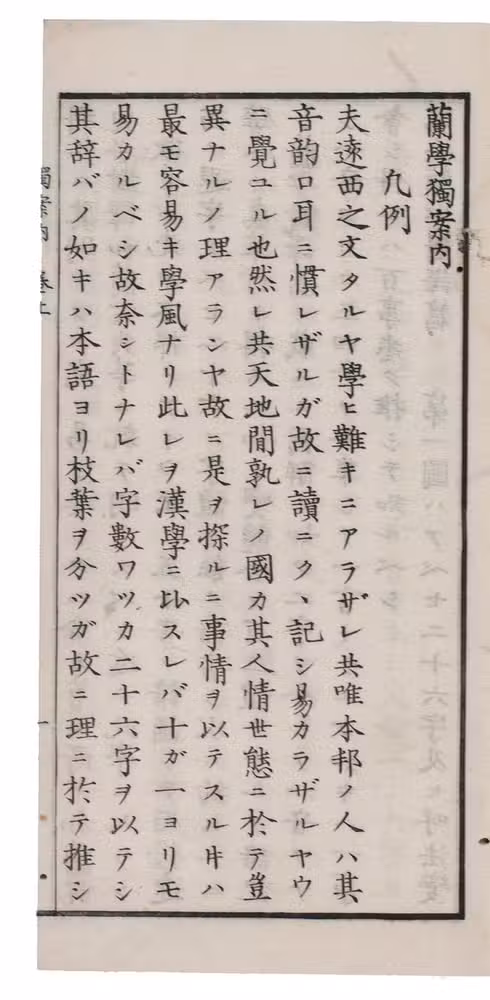 蘭學獨案内
凡例
夫遠西之文タルヤ學ヒ難キニアラザレ共唯本邦ノ人ハ其
音韵口耳ニ慣レザルガ故ニ讀ニクヽ記シ易カラザルヤウ
ニ覺ユル也然レ共天地間孰レノ國カ其人情世態ニ於テ豈
異ナルノ理アランヤ故ニ是ヲ探ルニ事情ヲ以テスル片ハ
最モ容易キ學風ナリ此レヲ漢學ニ比スレバ十ガ一ヨリモ
易カルベシ故奈シトナレバ字數ワツカ二十六字ヲ以テシ
其辞バノ如キハ本語ヨリ枝葉ヲ分ツガ故ニ理ニ於テ推シ
獨案内 卷上
一